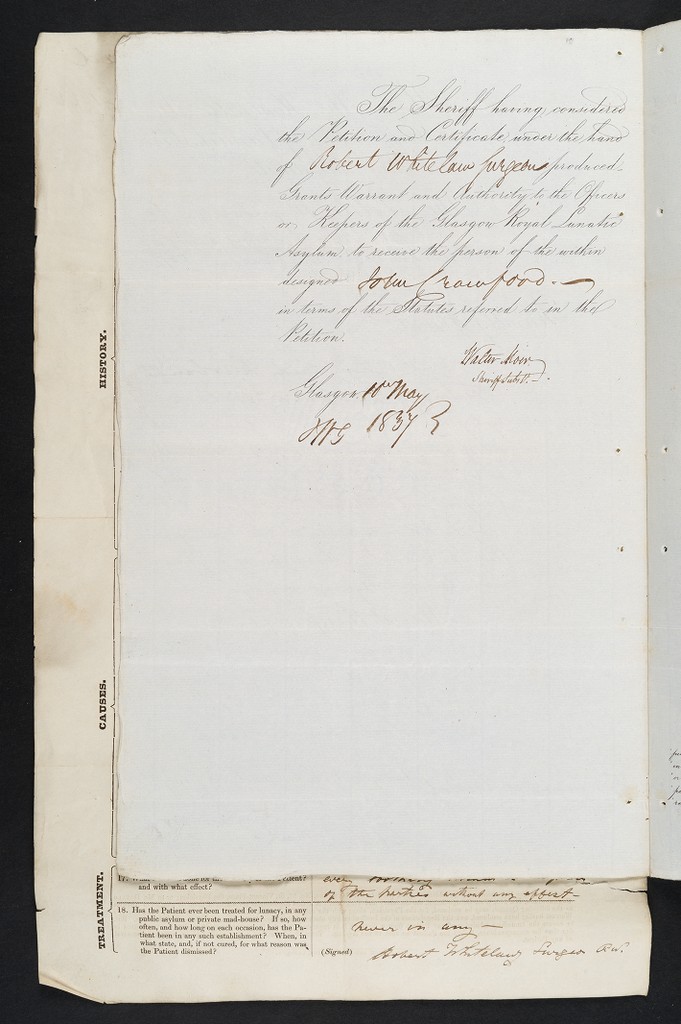 The Sheriff having considered
the Petition and Certificate under the hand
of Robert Whitelaw Surgeon produced
Grants Warrant and Authority to the Officers
or Keepers of the Glasgow Royal Lunatic
Asylum to receive the person of the within
designed John Crawford.
in terms of the Statutes referred to in the
Petition.
Walter Moir
Sheriff Subst.
Glasgow 10th May
1837
HISTORY.
CAUSES.
TREATMENT.
17.
and with what effect?
of the parties without any effect
18. Has the Patient ever been treated for lunacy, in any
public asylum or private mad-house? If so, how
often, and how long on each occasion, has the Pa-
tient been in any such establishment? When, in
what state, and, if not cured, for what reason was
the Patient dismissed?
never in any
(Signed) Robert Whitelaw Surgeon